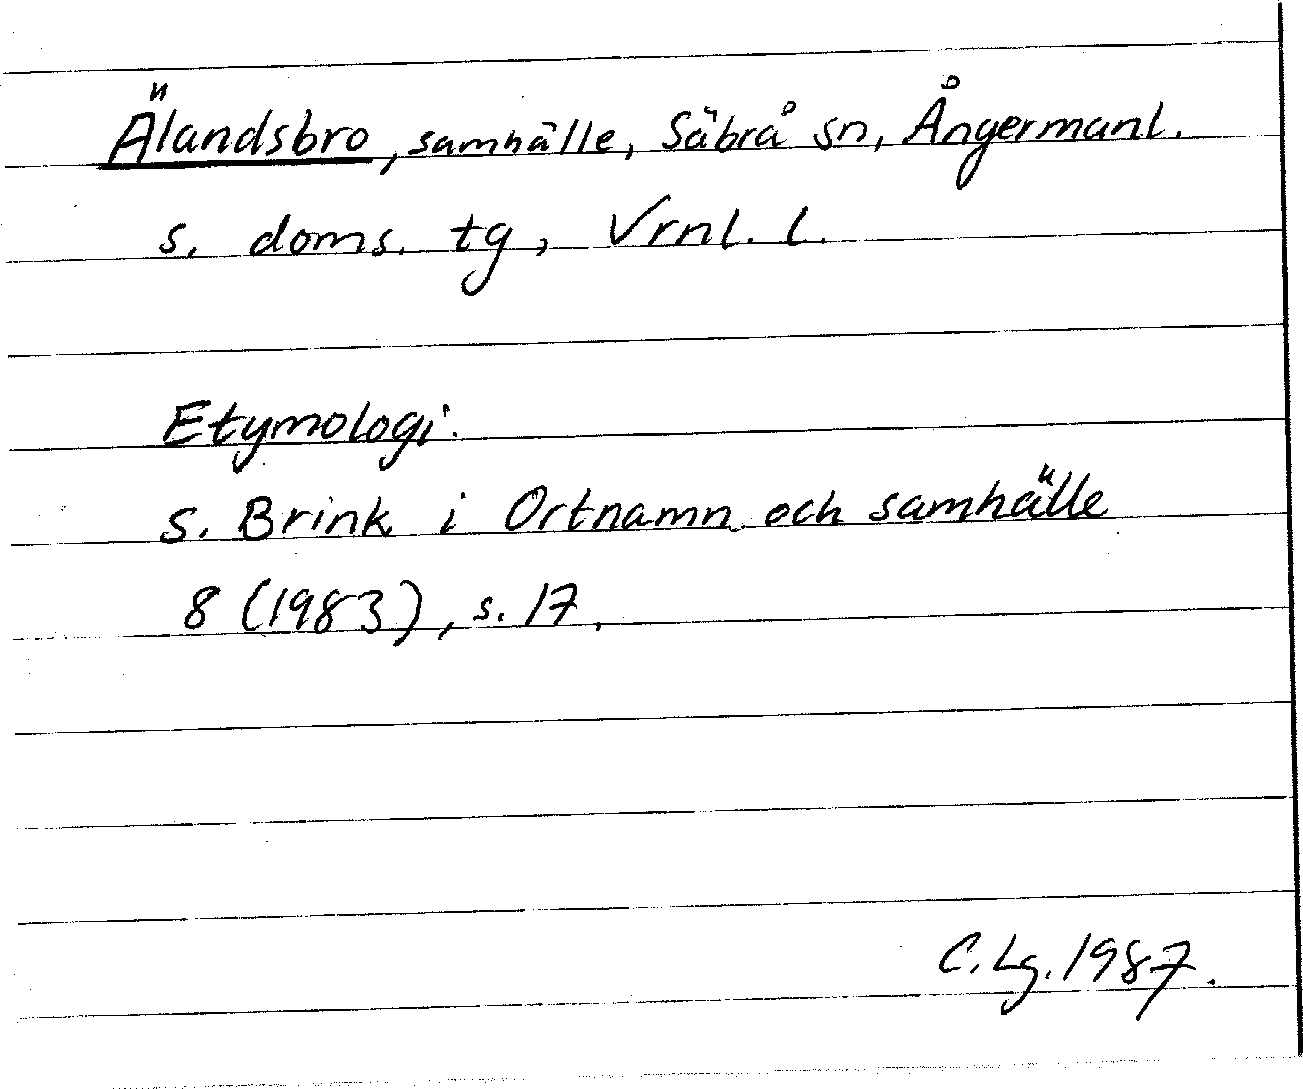 Älandsbro, samhälle, Säbrå sn, Ångermanl.
s. doms. tg, Vrnl. l.
Etymologi.
s. Brink i Ortnamn och samhälle
8 (1983), s. 17.
C. Lg. 1987.